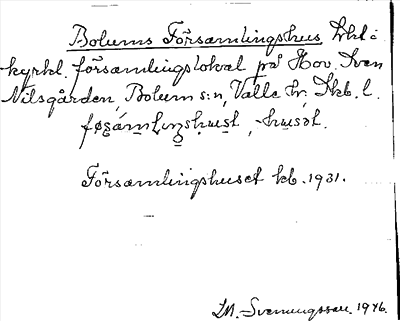 Bolums Församlingshus
kyrkl. församlingslokal på Hov. Sven
Nilsgården, Bolum s:n, Valle hr. Skb. l.
Församlingshuset kb. 1931.
M. Svenungsson. 1946.